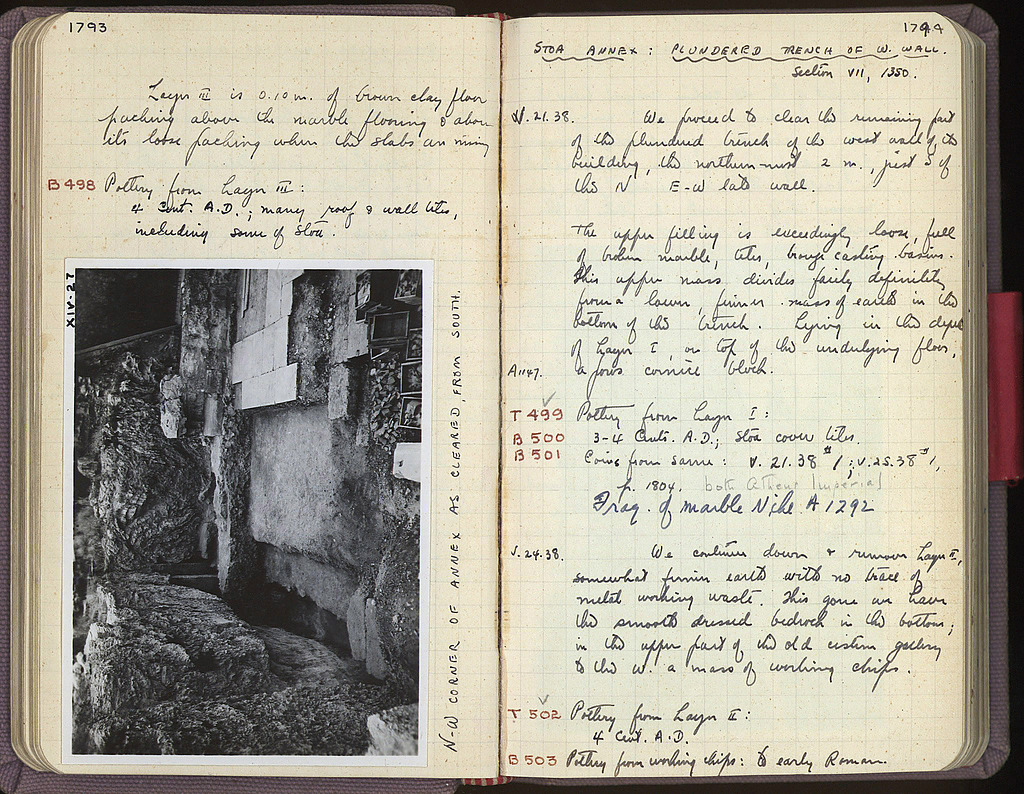 1793
Layer III is 0.10 m. of brown clay floor
packing above the marble flooring & above
its loose packing where the slabs are missing
B 498 Pottery from Layer III:
4 Cent. A.D.; many roof & wall tiles,
including some of Stoa.
XIV-27
N-W CORNER OF ANNEX AS CLEARED, FROM SOUTH.
1794
STOA ANNEX: PLUNDERED TRENCH OF W. WALL.
Section VII, 1350.
V. 21. 38. We proceed to clear the remaining part
of the plundered trench of the west wall of the
building, the northern-most 2 m., just S of
the N E-W late wall.
The upper filling is exceedingly loose, full
of broken marble, tiles, bronze casting basins.
This upper mass divides fairly definitely
from a lower, firmer mass of earth in the
bottom of the trench. Lying in the depth
of Layer I, on top of the underlying floor,
A1147. a poros cornice block.
T 499 Pottery from Layer I:
B 500 3-4 Cents. A.D.; Stoa cover tiles.
B 501 Coins from same: V. 21.38 #1; V.25.38 #1,
p. 1804. both Athens Imperial
Frag. of marble Nike A 1292
V. 24.38. We continue down & remove Layer II,
somewhat firmer earth with no trace of
metal working waste. This gone we have
the smooth dressed bedrock in the bottom;
in the upper part of the old cistern gallery
to the W. a mass of working chips.
T 502 Pottery from Layer II:
4 Cent. A.D.
B 503 Pottery from working chips: to early Roman.